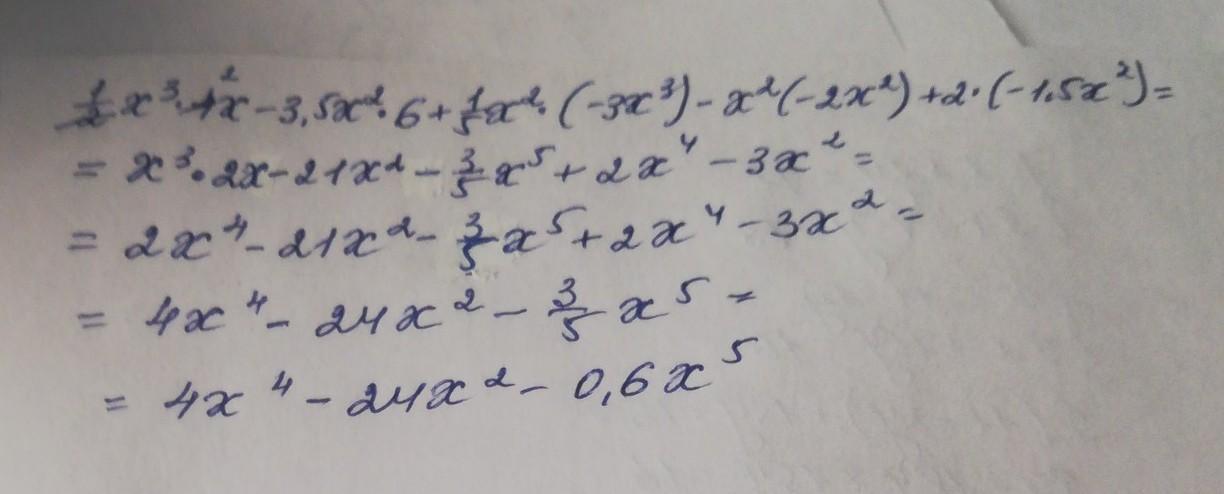 ½x³·4x 2 - 3,5x²·6 + ⅕x²·(-3x³) - x²(-2x²) + 2·(-1,5x²) =
= x³·2x - 21x² - ⅗x⁵ + 2x⁴ - 3x² =
= 2x⁴ - 21x² - ⅗x⁵ + 2x⁴ - 3x² =
= 4x⁴ - 24x² - ⅗x⁵ =
= 4x⁴ - 24x² - 0,6x⁵